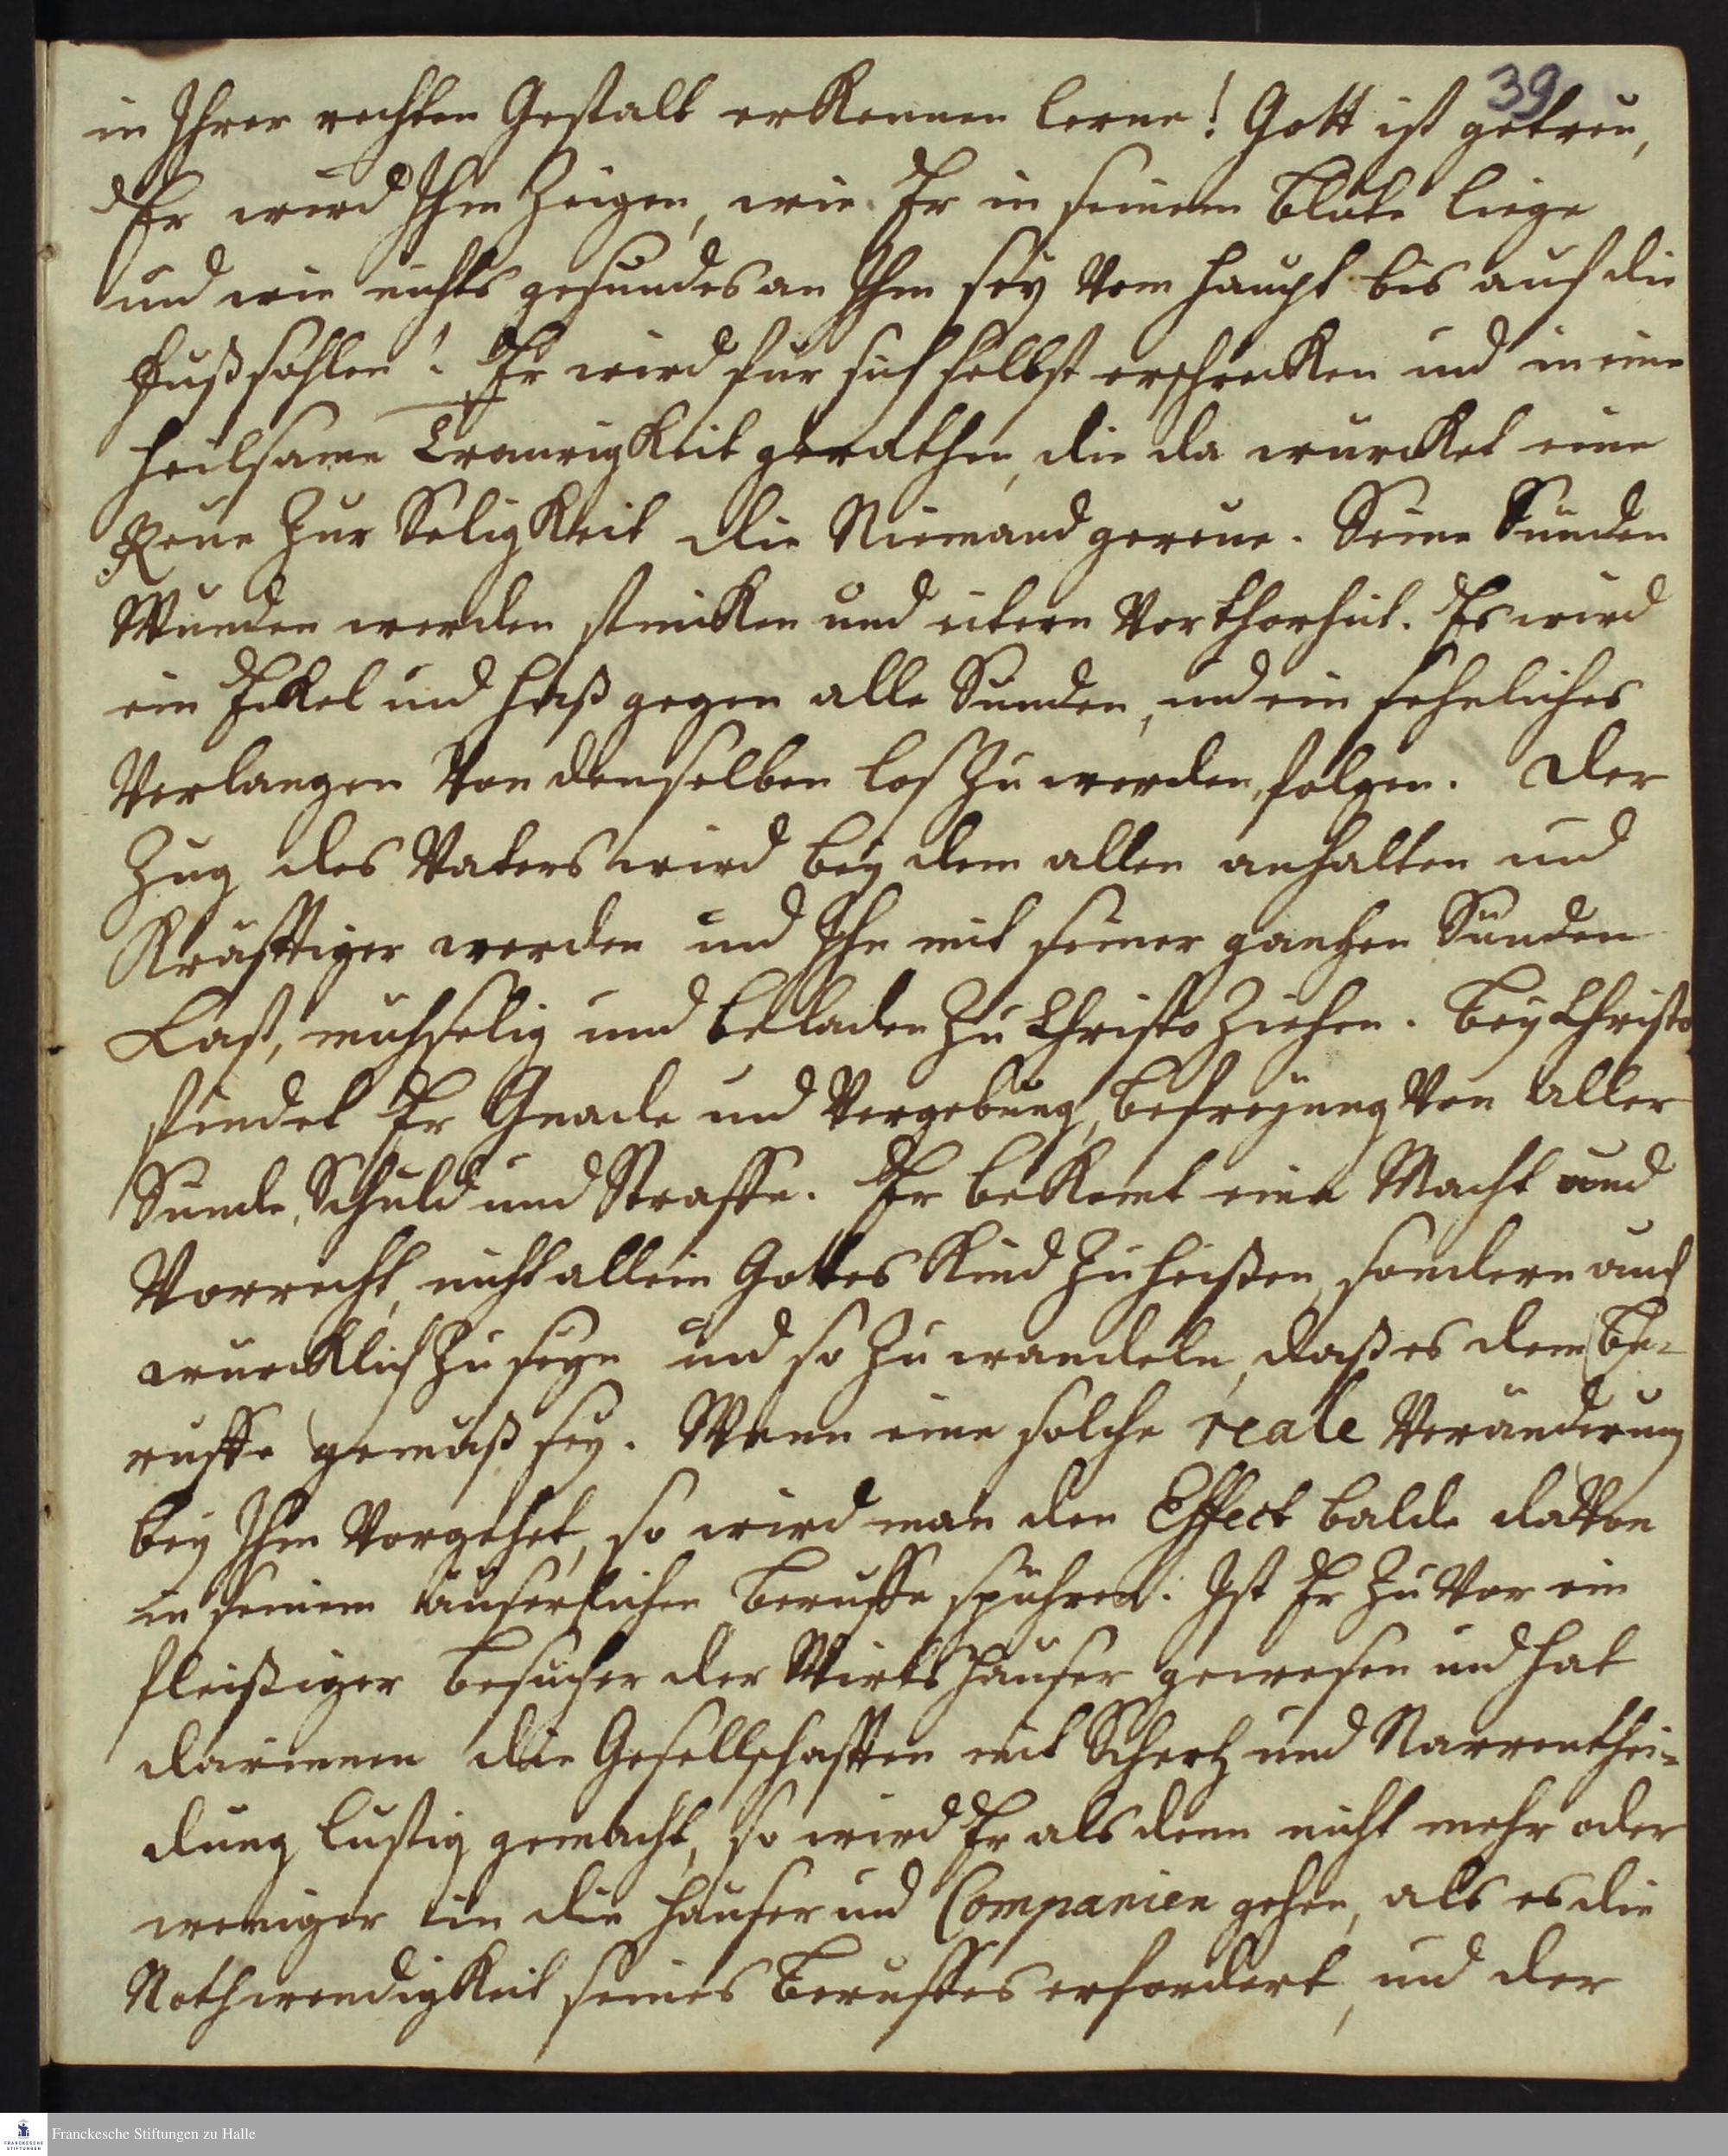 39
in Ihrer rechten Gestalt erkennen lerne! Gott ist getreu,
Er wird Ihm zeigen, wie Er in seinem Blute liege
und wie nichts gesundes an Ihm sey vom Haupt bis auf die
Fußsohlen! Er wird für sich selbst erschrecken und in eine
heilsame Traurigkeit gerathen, die da würcket eine
Reue zur Seligkeit die Niemand gereue. Seine Sünden
Wunden werden stincken und eitern vor Thorheit. Es wird
ein Eckel und Haß gegen alle Sünden, und ein sehnliches
Verlangen von denselben los zu werden, folgen. Der
Zug des Vaters wird bey dem allen anhalten und
kräfftiger werden und Ihn mit seiner gantzen Sünden
Last, mühselig und beladen zu Christo ziehen. Bey Christo
findet Er Gnade und Vergebung, Befreyung von aller
Sünde, Schuld und Straffe. Er bekomt eine Macht und
Vorrecht, nicht allein Gottes Kind zu heißen, sondern auch
würcklich zu seyn und so zu wandeln, daß es dem Be-
ruffe gemäß sey. Wenn eine solche reale Veränderung
bey Ihm vorgehet, so wird man den Effect balde davon
in seinem äuserlichen Beruffe spühren. Ist Er zuvor ein
fleißiger Besucher der Wirtshäuser gewesen und hat
darinnen die Gesellschafften mit Schertz und Narrenthei-
dung lustig gemacht, so wird Er als denn nicht mehr oder
weniger in die Häuser und Companien gehen, als es die
Nothwendigkeit seines Beruffes erfordert, und der
Franckesche Stiftungen zu Halle
FRANCKESCHE
STIFTUNGEN